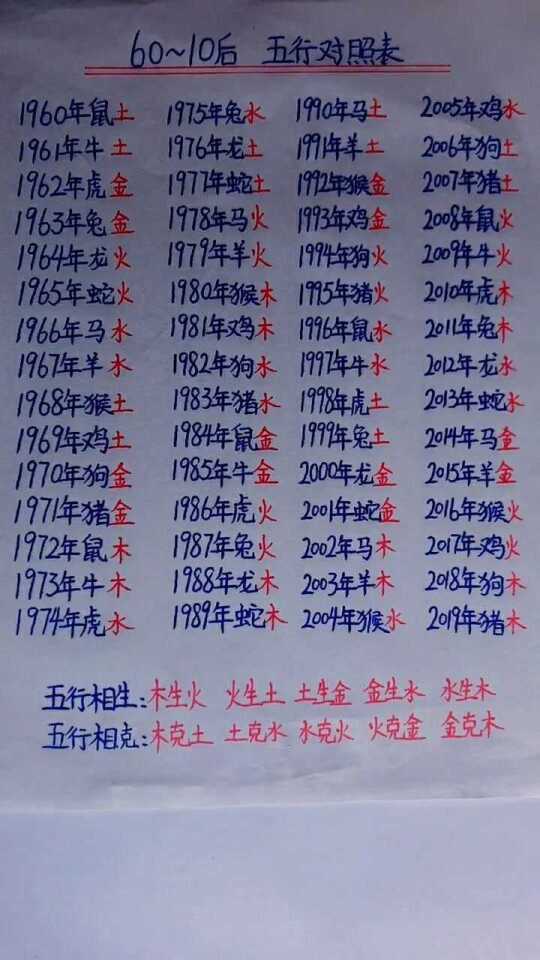 60~10后 五行对照表
1960年鼠土 1975年兔水 1990年马土 2005年鸡水
1961年牛土 1976年龙土 1991年羊土 2006年狗土
1962年虎金 1977年蛇土 1992年猴金 2007年猪土
1963年兔金 1978年马火 1993年鸡金 2008年鼠火
1964年龙火 1979年羊火 1994年狗火 2009年牛火
1965年蛇火 1980年猴木 1995年猪火 2010年虎木
1966年马水 1981年鸡木 1996年鼠水 2011年兔木
1967年羊水 1982年狗水 1997年牛水 2012年龙水
1968年猴土 1983年猪水 1998年虎土 2013年蛇水
1969年鸡土 1984年鼠金 1999年兔土 2014年马金
1970年狗金 1985年牛金 2000年龙金 2015年羊金
1971年猪金 1986年虎火 2001年蛇金 2016年猴火
1972年鼠木 1987年兔火 2002年马木 2017年鸡火
1973年牛木 1988年龙木 2003年羊木 2018年狗木
1974年虎水 1989年蛇木 2004年猴水 2019年猪木
五行相生:木生火 火生土 土生金 金生水 水生木
五行相克:木克土 土克水 水克火 火克金 金克木